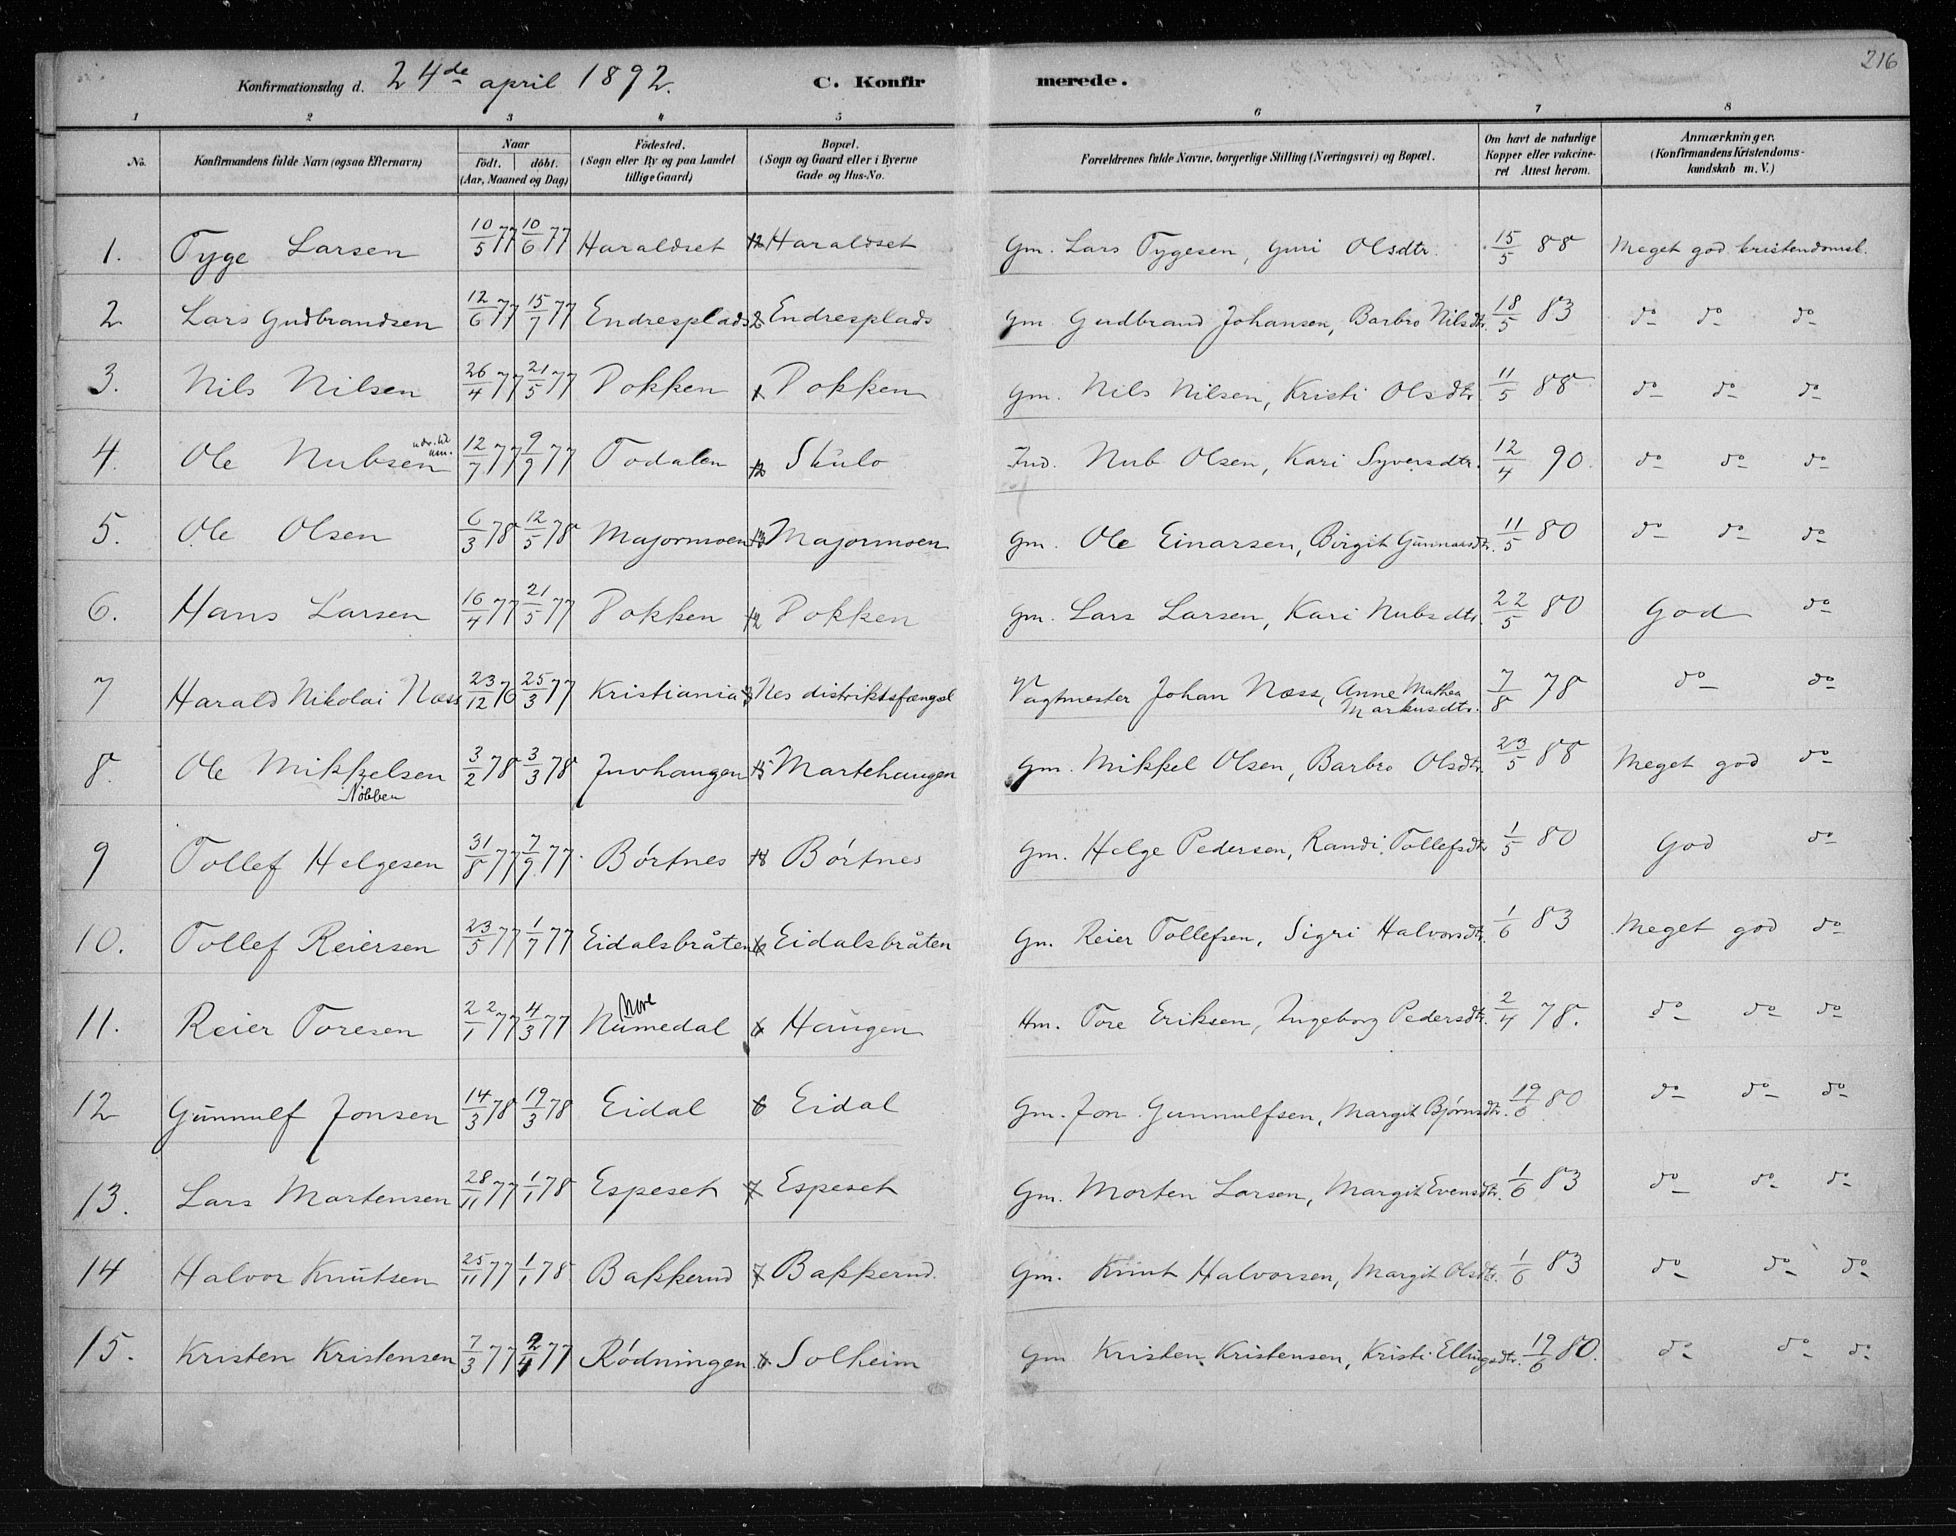 216
Konfirmationsdag d. 24de april 1892. C. Konfirmerede.
1 2 3 4 5 6 7 8
No. Konfirmandens fulde Navn (ogsaa Efternavn) Naar født. døbt. (Aar, Maaned og Dag) Fødested. (Sogn eller By og paa Landet tillige Gaard) Bopæl. (Sogn og Gaard eller i Byerne Gade og Hus-No. Forældrenes fulde Navne, borgerlige Stilling (Næringsvei) og Bopæl. Om havt de naturlige Kopper eller vakcineret Attest herom. Anmærkninger. (Konfirmandens Kristendomskundskab m. V.)
1. Tyge Larsen 10/5 77 10/6 77 Haraldset 12 Haraldset Gm. Lars Tygesen, Guri Olsdtr. 15/5 88 Meget god kristendomsk.
2 Lars Gudbrandsen 12/6 77 15/7 77 Endresplads 2 Endresplads Gm. Gudbrand Johansen, Barbro Nilsdtr. 18/5 83 do do do
3. Nils Nilsen 26/4 77 21/5 77 Dokken 1 Dokken Gm. Nils Nilsen, Kristi Olsdtr. 11/5 88 do do do
4. Ole Nubsen 12/7 77 9/9 77 Todalen 12 Skulo Ind. Nub Olsen, Kari Syversdtr. 12/4 90. do do do
5. Ole Olsen 6/3 78 12/5 78 Majormoen 13 Majormoen Gm. Ole Einarsen, Birgit Gunnarsdtr. 11/5 80 do do do
6. Hans Larsen 16/4 77 21/5 77 Dokken 12 Dokken Gm. Lars Larsen, Kari Nubsdtr. 22/5 80 God do
7 Harald Nikolai Næss 23/12 76 25/3 77 Kristiania 3 Nes distriktsfængsel Vagtmester Johan Næss, Anne Mathea Markusdtr. 7/8 78 do do
8. Ole Mikkelsen 3/2 78 3/3 78 Juvhaugen 15 Martehaugen Gm. Mikkel Olsen, Barbro Olsdtr. 23/5 88 Meget god do
Nøbben
9 Tollef Helgesen 31/8 77 7/9 77. Børtnes 18 Børtnes Gm. Helge Pedersen, Randi Tollefsdtr 1/5 80 God do
10. Tollef Reiersen 23/5 77 1/7 77 Eidalsbråten 6 Eidalsbråten Gm. Reier Tollefsen, Sigri Halvorsdtr. 1/6 83 Meget god do
11. Reier Toresen 22/1 77 4/3 77 Nore Numedal 6 Haugen Hm. Tore Eriksen, Ingeborg Pedersdtr. 2/4 78. do do do
12 Gunnulf Jonsen 14/3 78 19/3 78 Eidal 6 Eidal Gm. Jon Gunnulfsen, Margit Bjørnsdtr. 19/6 80 do do do
13. Lars Mortensen 28/11 77 1/1 78 Espeset 7 Espeset Gm. Morten Larsen, Margit Evensdtr. 1/6 83 do do do
14 Halvor Knutsen 25/11 77 1/1 78 Bakkerud 7 Bakkerud. Gm. Knut Halvorsen, Margit Olsdtr. 1/6 83 do do do
15. Kristen Kristensen 7/3 77 2/4 77 Rødningen 6 Solheim Gm Kristen Kristensen, Kristi Ellingsdtr. 19/6 80. do do do